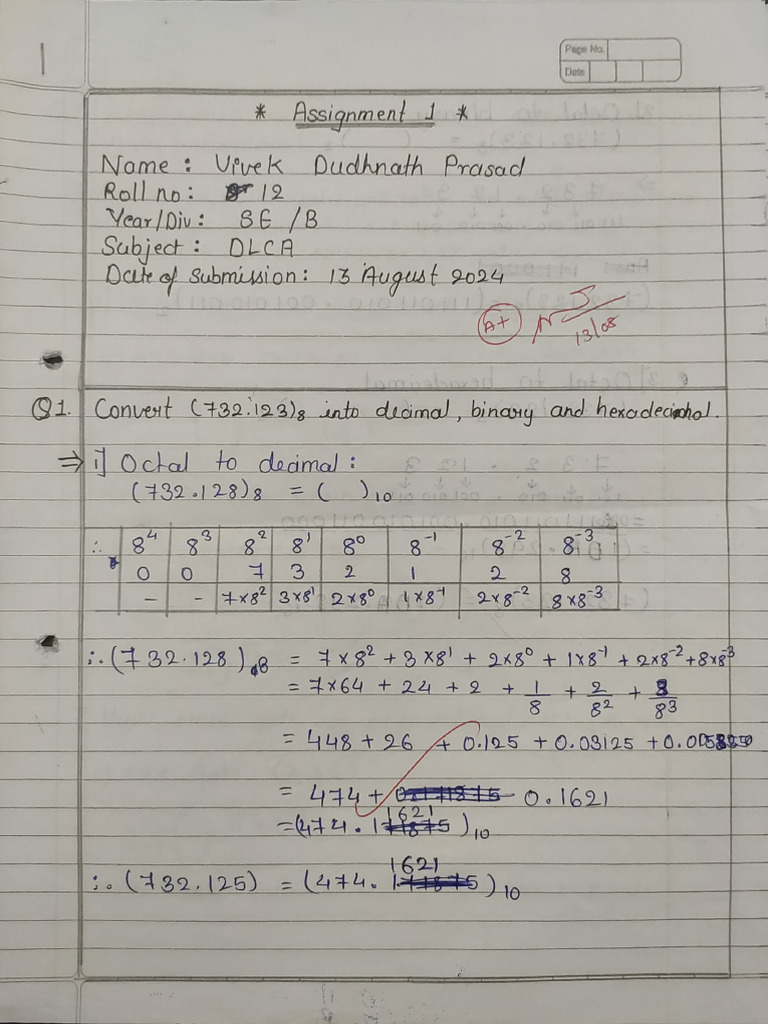 1
Page No.
Date
* Assignment 1 *
Name : Vivek Dudhnath Prasad
Roll no: 12
Year/Div: SE /B
Subject: DLCA
Date of submission: 13 August 2024
A+
13/08
Q1. Convert (732.123)₈ into decimal, binary and hexadecimal.
⇒ i] Octal to decimal :
(732.128)₈ = ( )₁₀
∴ 8⁴ 8³ 8² 8¹ 8⁰ 8⁻¹ 8⁻² 8⁻³
0 0 7 3 2 1 2 8
- - 7×8² 3×8¹ 2×8⁰ 1×8⁻¹ 2×8⁻² 8×8⁻³
∴ (732.128)₈ = 7×8² + 3×8¹ + 2×8⁰ + 1×8⁻¹ + 2×8⁻² + 8×8⁻³
= 7×64 + 24 + 2 + 1/8 + 2/8² + 3/8³
= 448 + 26 + 0.125 + 0.03125 +
= 474 + 0.1621
= (474.1621)₁₀
∴ (732.125) = (474.1621)₁₀